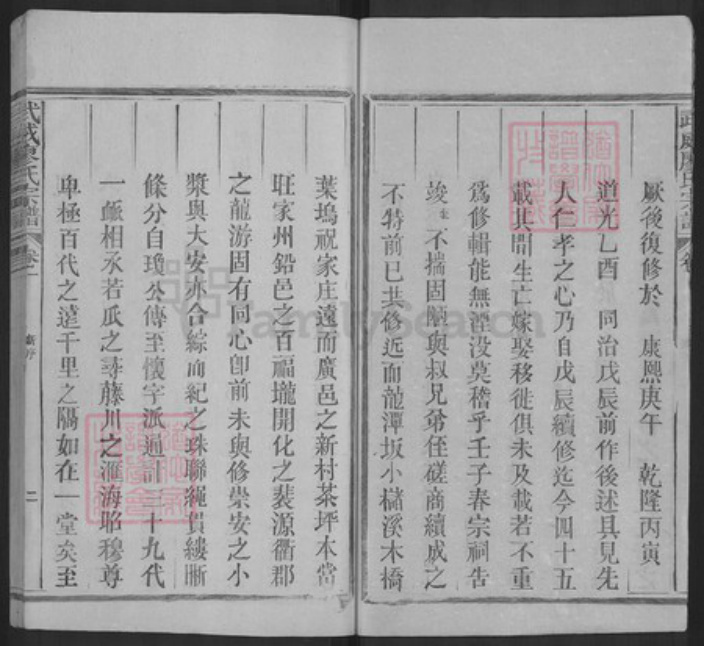 厥後復修於　康熙庚午　乾隆丙寅
道光乙酉　同治戊辰前作後述具見先
人仁孝之心乃自戊辰續修迄今四十五
載其間生亡嫁娶移徙俱未及載若不重
爲修輯能無湮没莫稽乎壬子春宗祠告
竣　不揣固陋與叔兄弟侄磋商續成之
不特前已共修近而龍潭坂小櫧溪木橋
葉塢祝家庄遠而廣邑之新村茶坪本當
旺家州鉛邑之百福壠開化之裴源衢郡
之龍游固有同心卽前未與修崇安之小
漿與大安亦合綜而紀之珠聯繩貫縷晰
條分自瓊公傳至懷字派通計三十九代
一脈相承若瓜之藤川之滙海昭穆尊
卑極百代之遠千里之隔如在一堂矣至
武城氏宗譜
卷
二
FamilySearch